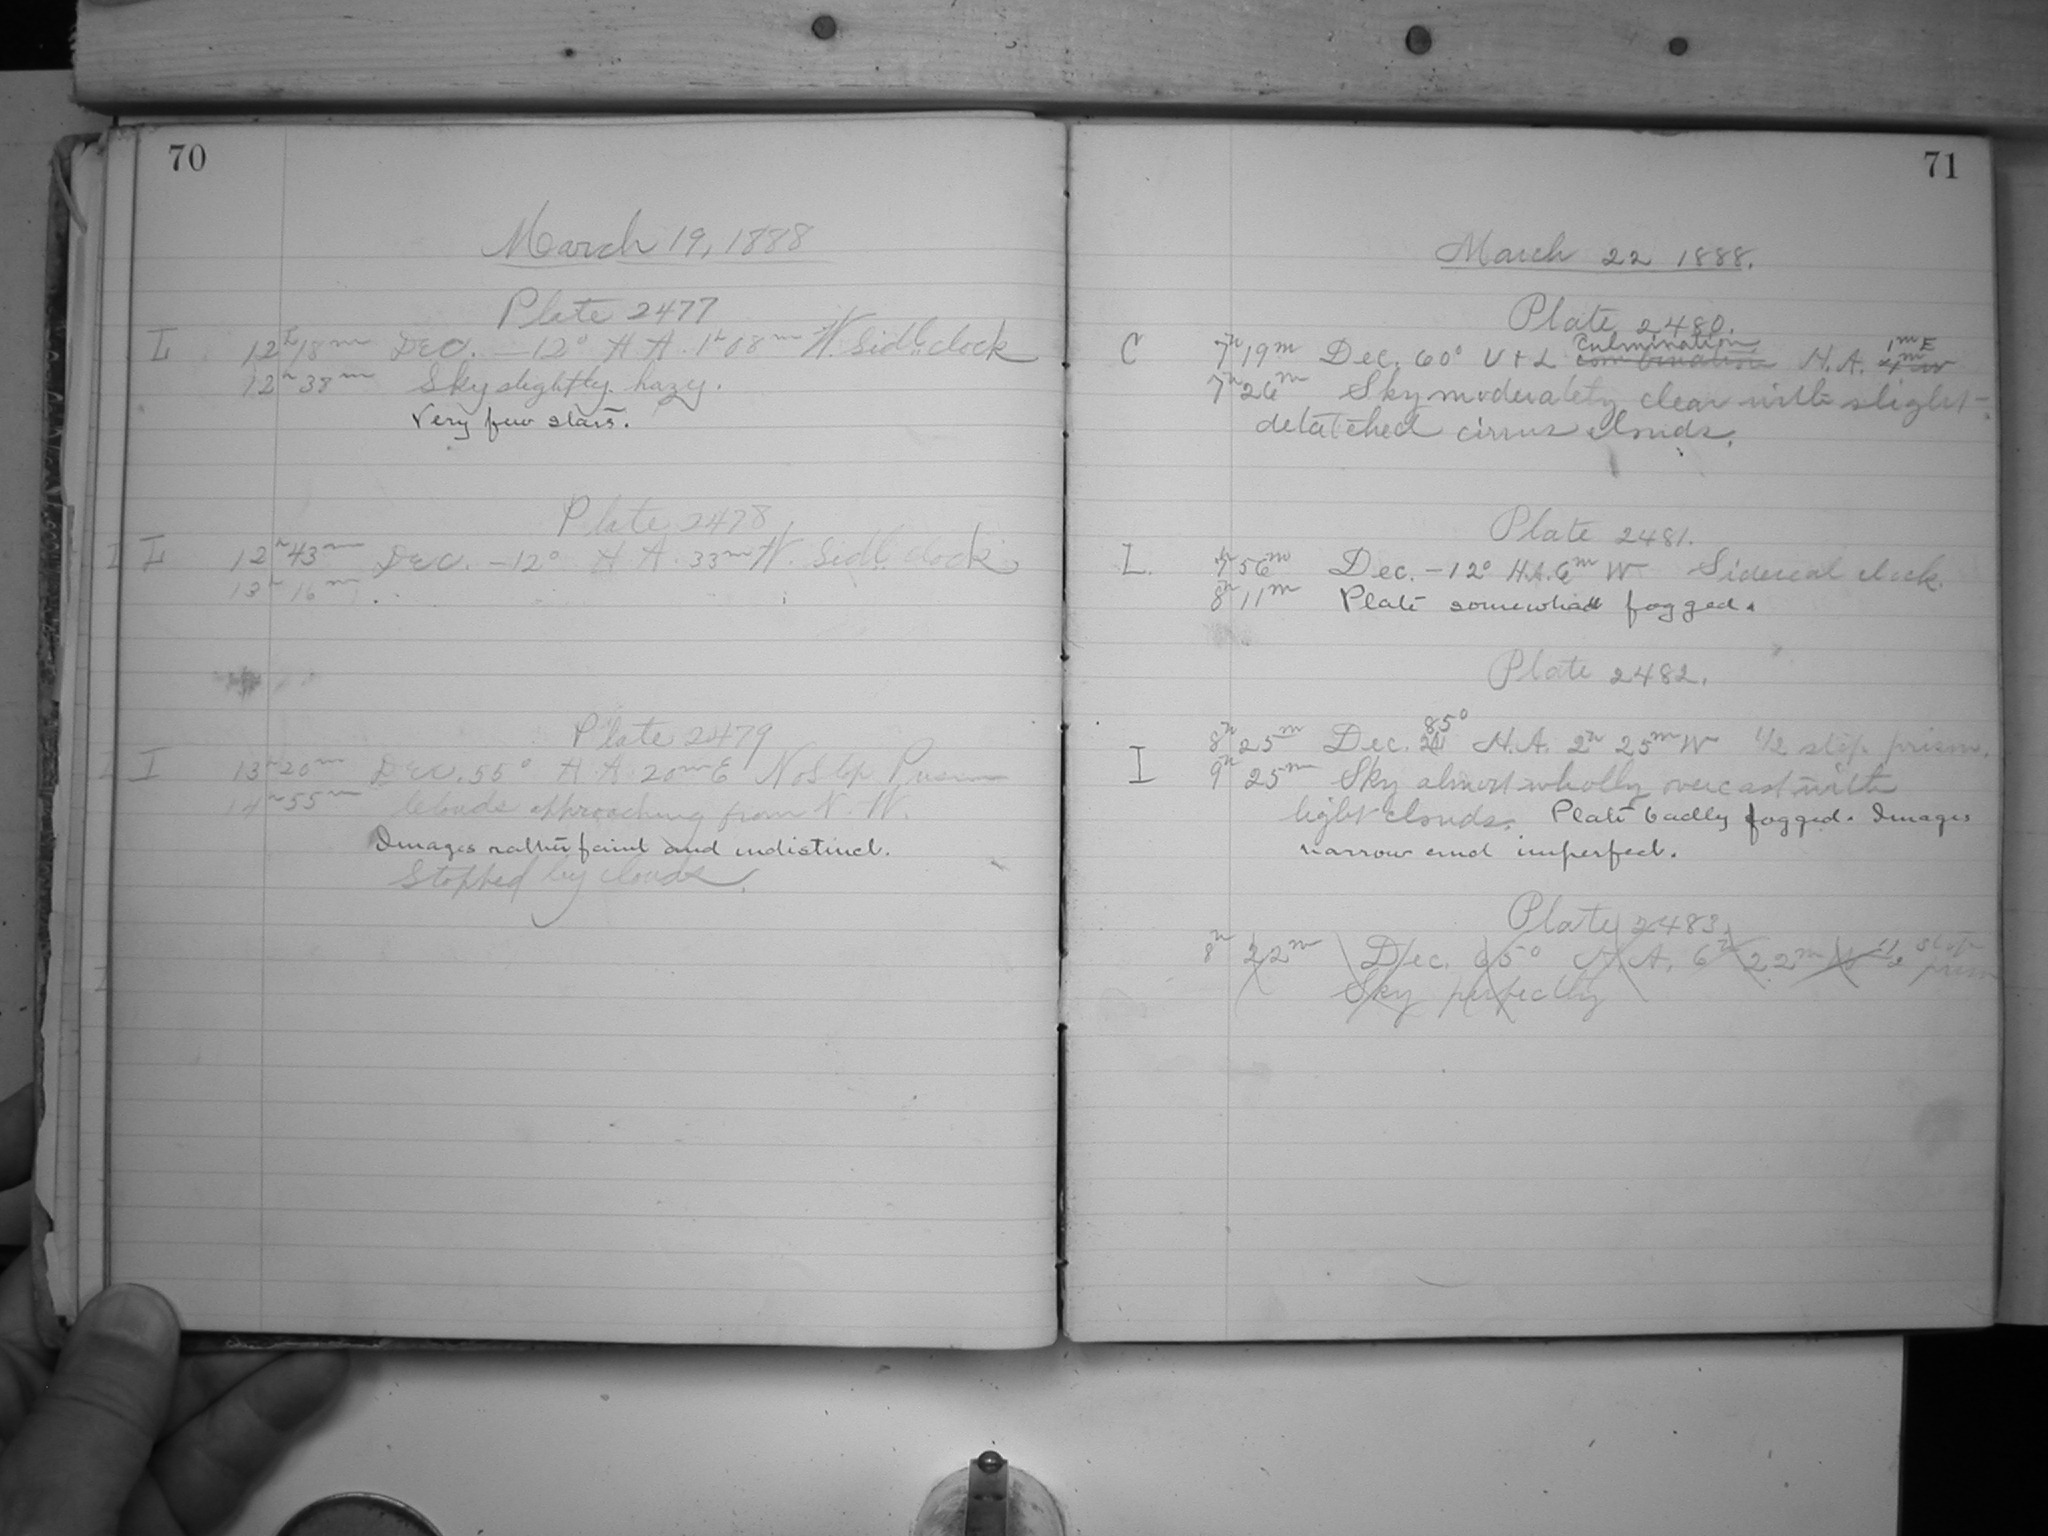 70
March 19, 1888
Plate 2477
L 12h 18m Dec. -12° H A. 1h 08m W. Sidl. clock
12h 38m Sky slightly hazy.
Very few stars.
Plate 2478
I L 12h 43m Dec. -12° H A. 33m W. Sidl. clock
13h 16m
Plate 2479
I I 13h 20m Dec. 55° H A. 20m E No Stop Prism
14h 55m Clouds approaching from N. W.
Images rather faint and indistinct.
Stopped by clouds.
71
March 22 1888.
Plate 2480.
Culmination 1m E
C 7h 19m Dec. 60° U + L combination H.A. 4m W
7h 26m Sky moderately clear with slight
detatched cirrus clouds.
Plate 2481.
L. 7h 56m Dec. -12° H.A. 6m W Sidereal clock.
8h 11m Plate somewhat fogged.
Plate 2482.
85°
8h 25m Dec. H.A. 2h 25m W 1/2 stop. prism.
I 9h 25m Sky almost wholly overcast with
light clouds. Plate badly fogged. Images
narrow and imperfect.
Plate 2483.
8h 22m Dec. 65° H.A. 6h 22m W 1/2 stop
prism
Sky perfectly